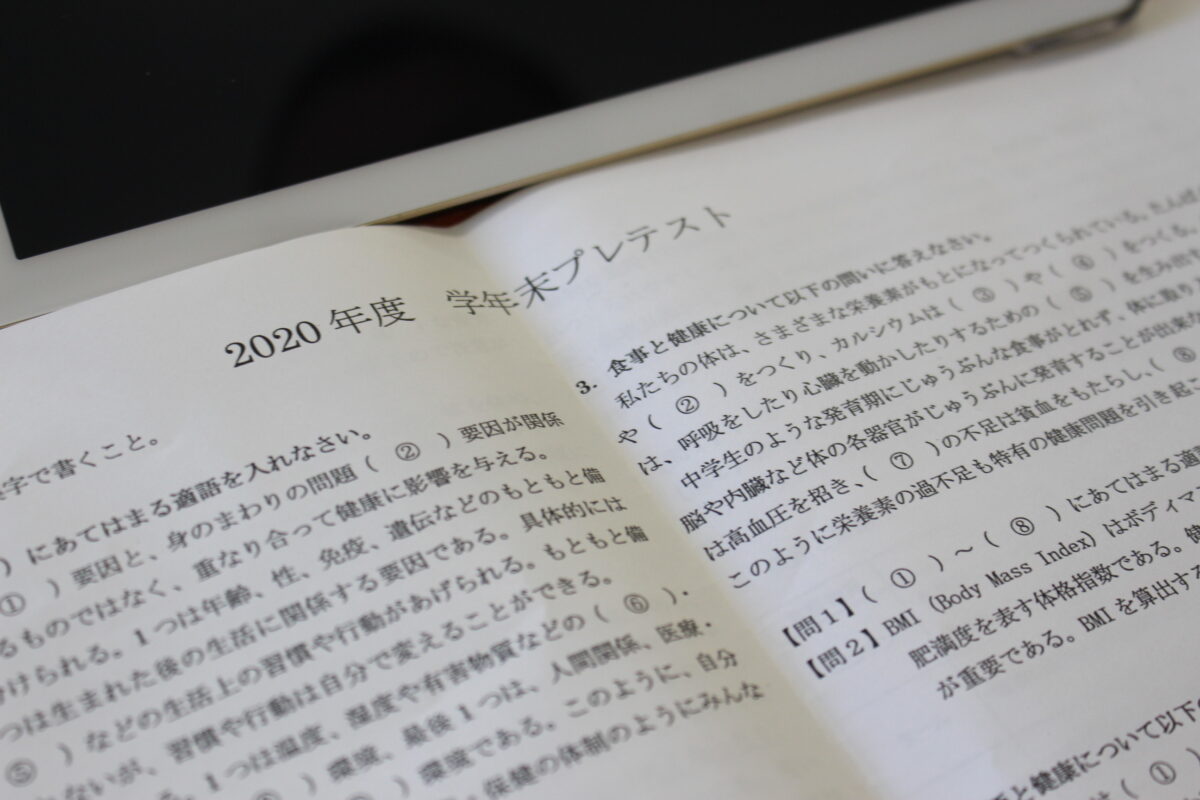 2020 年度　学年末プレテスト
漢字で書くこと。
）にあてはまる適語を入れなさい。
① ）要因と、身のまわりの問題（ ② ）要因が関係
るものではなく、重なり合って健康に影響を与える。
分けられる。1つは年齢、性、免疫、遺伝などのもともと備
つは生まれた後の生活に関係する要因である。具体的には
⑤ ）などの生活上の習慣や行動があげられる。もともと備
ないが、習慣や行動は自分で変えることができる。
1つは温度、湿度や有害物質などの（ ⑥ ）・
）環境、最後1つは、人間関係、医療・
）環境である。このように、自分
保健の体制のようにみんな
3. 食事と健康について以下の問いに答えなさい。
私たちの体は、さまざまな栄養素がもとになってつくられている。たんぱ
や（ ② ）をつくり、カルシウムは（ ③ ）や（ ④ ）をつくる。
は、呼吸をしたり心臓を動かしたりするための（ ⑤ ）を生み出す
中学生のような発育期にじゅうぶんな食事がとれず、体に取り
脳や内臓など体の各器官がじゅうぶんに発育することが出来な
は高血圧を招き、（ ⑦ ）の不足は貧血をもたらし、（ ⑧
このように栄養素の過不足も特有の健康問題を引き起こ
【問1】（ ① ）～（ ⑧ ）にあてはまる適語
【問2】BMI（Body Mass Index）はボディマ
肥満度を表す体格指数である。健
が重要である。BMI を算出する
と健康について以下
（ ① ）